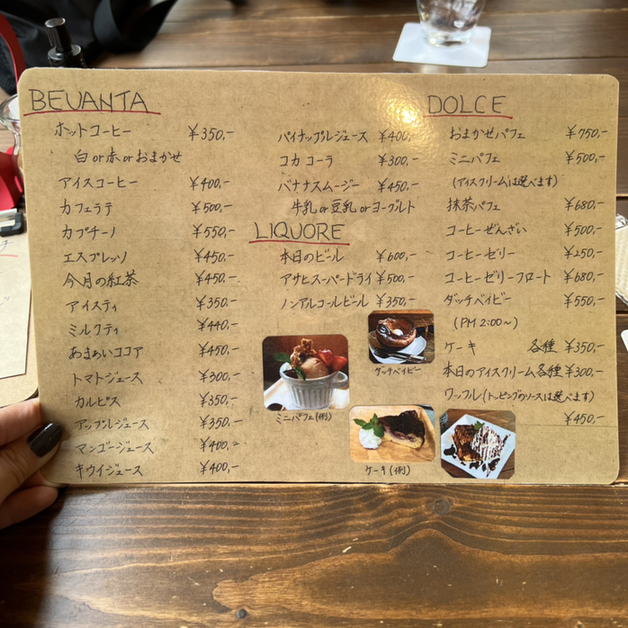 BEVANTA
ホットコーヒー ¥350,-
白or赤orおまかせ
アイスコーヒー ¥400,-
カフェラテ ¥500,-
カプチーノ ¥550,-
エスプレッソ ¥450,-
今月の紅茶 ¥450,-
アイスティ ¥350,-
ミルクティ ¥440,-
あまぁいココア ¥450,-
トマトジュース ¥300,-
カルピス ¥350,-
アップルジュース ¥350,-
マンゴージュース ¥400,-
キウイジュース ¥400,-
パイナップルジュース ¥400,-
コカコーラ ¥300,-
バナナスムージー ¥450,-
牛乳or豆乳orヨーグルト
LIQUORE
本日のビール ¥600,-
アサヒスーパードライ ¥500,-
ノンアルコールビール ¥350,-
ダッチベイビー
ミニパフェ(例)
ケーキ(例)
DOLCE
おまかせパフェ ¥750,-
ミニパフェ ¥500,-
(アイスクリームは選べます)
抹茶パフェ ¥680,-
コーヒーぜんざい ¥500,-
コーヒーゼリー ¥250,-
コーヒーゼリーフロート ¥680,-
ダッチベイビー ¥550,-
(PM 2:00~)
ケーキ 各種 ¥350,-
本日のアイスクリーム各種 ¥300,-
ワッフル(トッピングのソースは選べます)
¥450,-